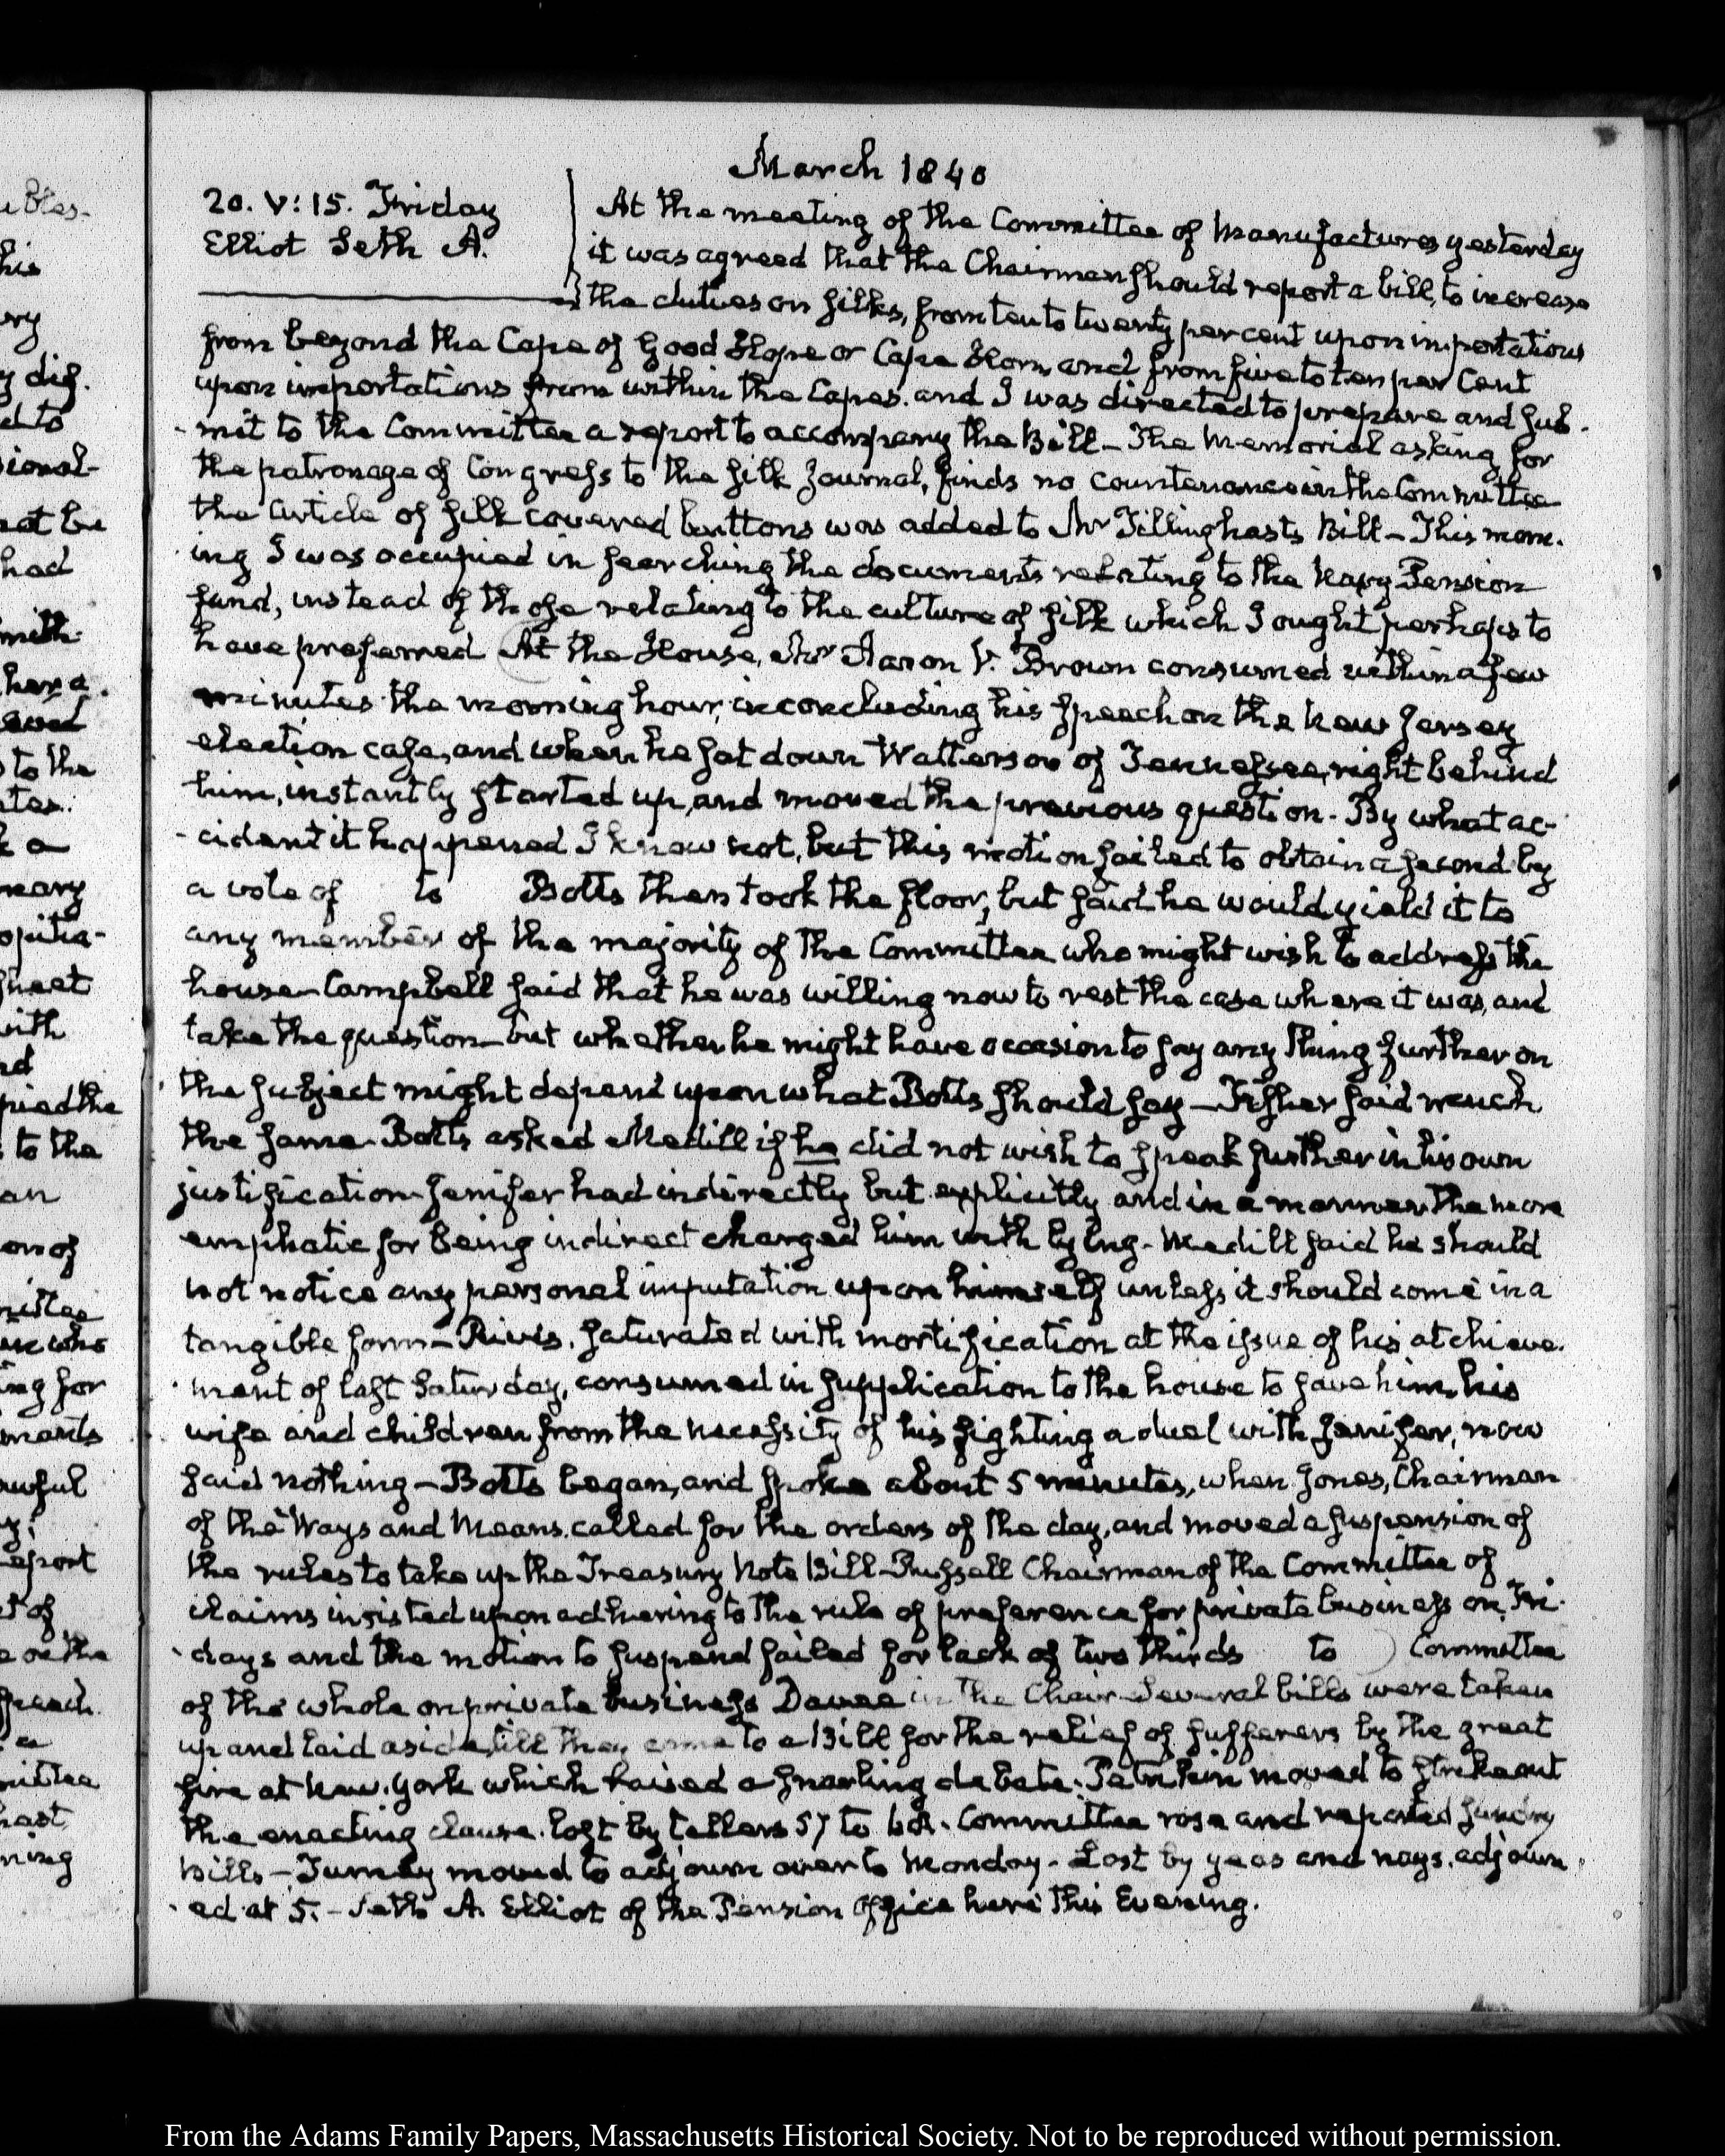 March 1840
20. V: 15. Friday
Elliot Seth A.
At the meeting of the Committee of Manufactures yesterday
it was agreed that the Chairman should report a bill, to increase
the duties on silks, from ten to twenty per cent upon importations
from beyond the Cape of Good Hope or Cape Horn, and from five to ten per Cent
upon importations from within the Capes. and I was directed to prepare and sub-
-mit to the Committee a report to accompany the Bill — The Memorial asking for
the patronage of Congress to the silk Journal, finds no countenance in the Committee
the article of silk covered buttons was added to Mr Tillinghasts Bill — This morn-
-ing I was occupied in searching the documents relating to the Navy Pension
fund, instead of those relating to the culture of silk which I ought perhaps to
have preferred At the House, Mr Aaron V. Brown consumed within a few
minutes the morning hour, in concluding his speech on the New Jersey
election case, and when he sat down Watterson of Tennessee, right behind
him, instantly started up, and moved the previous question. By what ac-
-cident it happened I know not, but this motion failed to obtain a second by
a vote of to Botts then took the floor, but said he would yield it to
any member of the majority of the Committee who might wish to address the
house — Campbell said that he was willing now to rest the case where it was, and
take the question — but whether he might have occasion to say any thing further on
the subject might depend upon what Botts should say — Fisher said much
the same — Botts asked Medill if he did not wish to speak further in his own
justification — Jenifer had indirectly but explicitly and in a manner the more
emphatic for being indirect charged him with lying — Medill said he should
not notice any personal imputation upon himself unless it should come in a
tangible form — Rives, saturated with mortification at the issue of his atchieve-
-ment of last Saturday, consumed in supplication to the house to save him, his
wife and children from the necessity of his fighting a duel with Jenifer, now
said nothing — Botts began, and spoke about 5 minutes, when Jones, Chairman
of the Ways and Means. called for the orders of the day, and moved a suspension of
the rules to take up the Treasury Note Bill — Russell Chairman of the Committee of
claims insisted upon adhering to the rule of preference for private business on Fri-
-days and the motion to suspend failed for lack of two thirds to ) Committee
of the whole on private business Davee in the Chair — Several bills were taken
up and laid aside, till they came to a Bill for the relief of sufferers by the great
fire at New-York which raised a snarling debate. Petrikin moved to strike out
the enacting clause. lost by tellers 57 to 62. Committee rose and reported sundry
bills — Turney moved to adjourn over to Monday — Lost by yeas and nays. adjourn-
-ed at 5. — Seth A. Elliot of the Pension office here this Evening.
From the Adams Family Papers, Massachusetts Historical Society. Not to be reproduced without permission.